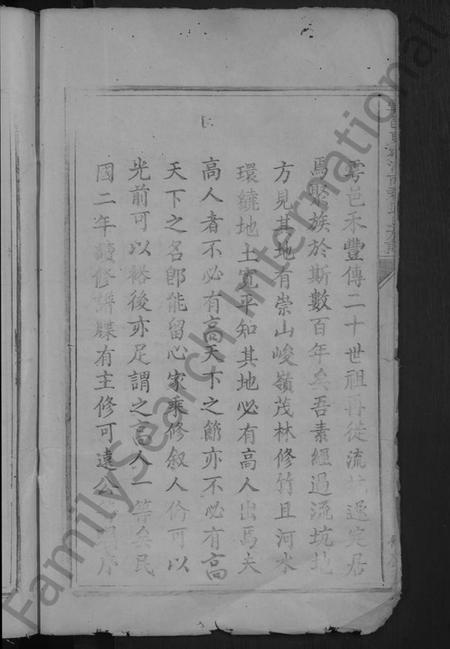 雩邑禾豐傳二十世祖再徙流坑遂定居
焉聚族於斯數百年矣吾素經過流坑地
方見其地有崇山峻嶺茂林修竹且河水
環繞地土寬平知其地必有高人出焉夫
高人者不必有高天下之節亦不必有高
天下之名卽能留心家乘修叙人倫可以
光前可以裕後亦足謂之高人一等矣民
國二年續修譜牒有主修可遠公
FamilySearch International